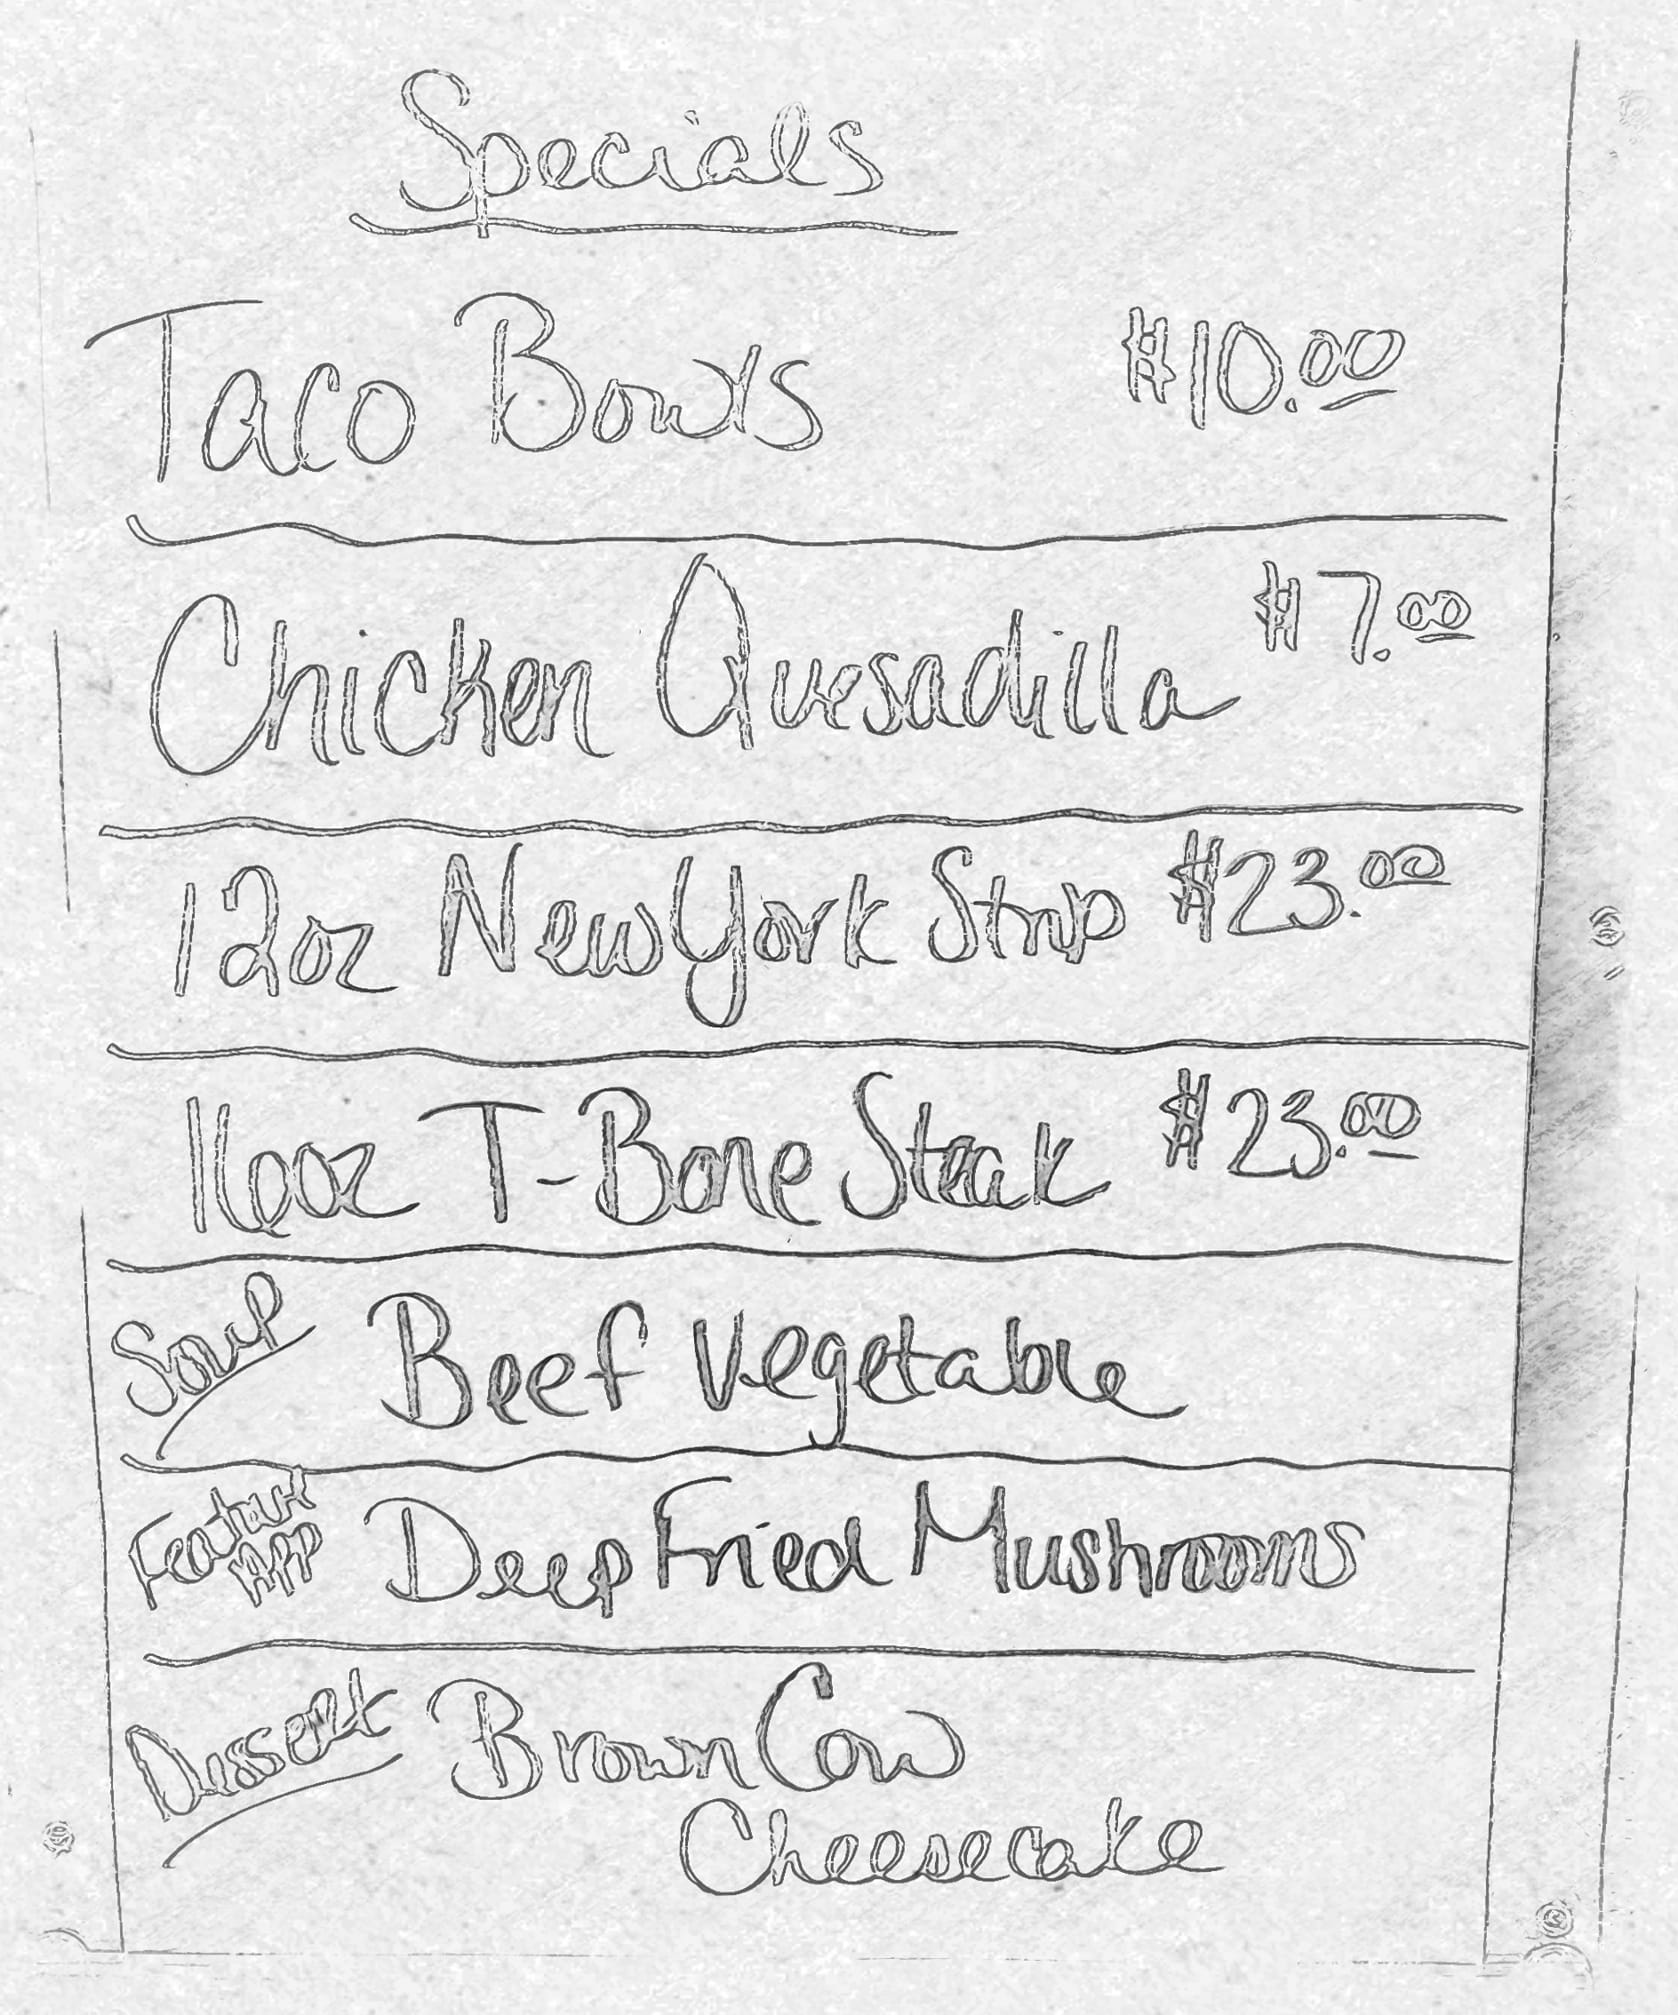 Specials
Taco Bowls $10.00
Chicken Quesadilla $7.00
12oz New York Strip $23.00
16oz T-Bone Steak $23.00
Soup Beef Vegetable
Feature App Deep Fried Mushrooms
Dessert Brown Cow
Cheesecake